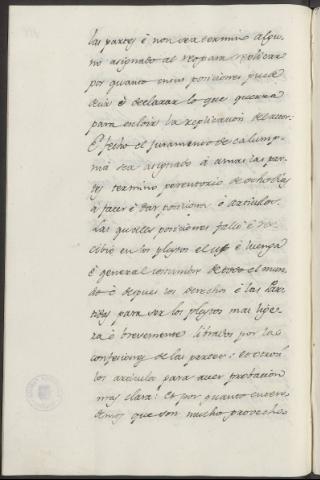 las partes è non sea termino algu-
no asignado al reo para replicar
por quanto en sus posiciones puede
decir è declarar lo que querra
para excluir la replicacion del actor:
E fecho el juramento de calump-
nia sea asignado à amas las par-
tes termino perentorio de ocho dias
à facer è dar posiciones è articulos
Las quales posiciones falló è re-
cibió en los pleytos el uso è luenga
è general costumbre de todo el mun-
do è despues los derechos è las Par-
tidas para ser los pleytos mas lige-
ra è brevemente librados por las
confesiones de las partes: è otrosi
los articulos para aver probacion
mas clara: Et por quanto enten-
demos que son mucho provechos